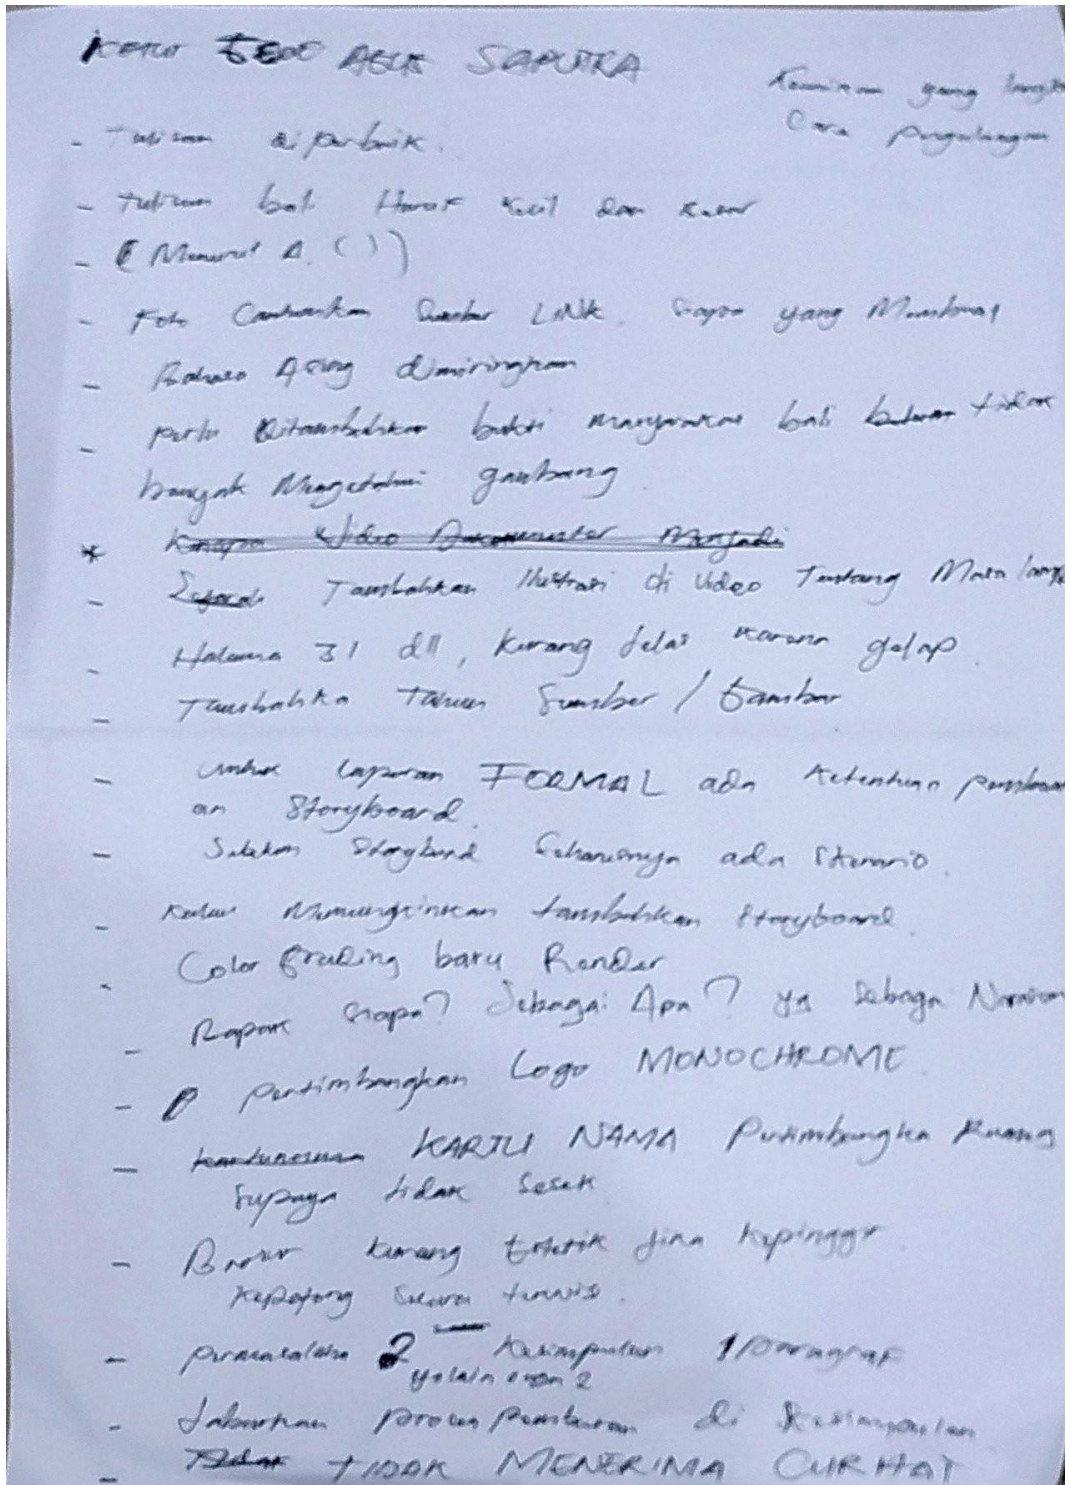 KETUT GEDE AGUS SAPUTRA
yang
Cara pengulangan
- Tulisan diperbaik.
- Tulisan bali Huruf kecil dan besar
- (Menurut A. ( ))
- Foto Cantumkan Sumber LINK, Siapa yang Membuat
- Bahasa Asing dimiringkan
- perlu Ditambahkan bukti masyarakat bali tidak
banyak Mengetahui gambang
* Kenapa Video Dokumenter Menjadi
- Tambahkan Ilustrasi di Video Tentang Masa
- Halama 31 dll, Kurang Jelas Karena gelap.
- Tambahka Tahun Sumber / Gambar
- untuk laporan FORMAL ada Ketentuan
an Storyboard.
- Sebelum Storyboard Seharusnya ada Skenario.
- Kalau Memungkinkan tambahkan Storyboard.
- Color Grading baru Render
- Bapak Siapa? Sebagai Apa? yg Sebagai
- pertimbangkan Logo MONOCHROME
- KARTU NAMA Pertimbangka Ruang
Supaya tidak Sesak
- Brosur Kurang Estetik Jika Kepinggir
Kepotong Secara teknis.
- permasalaha 2 Kesimpulan 1 paragraf
- Jabarkan proses pembuatan di Kesimpulan
- Tidak TIDAK MENERIMA CURHAT